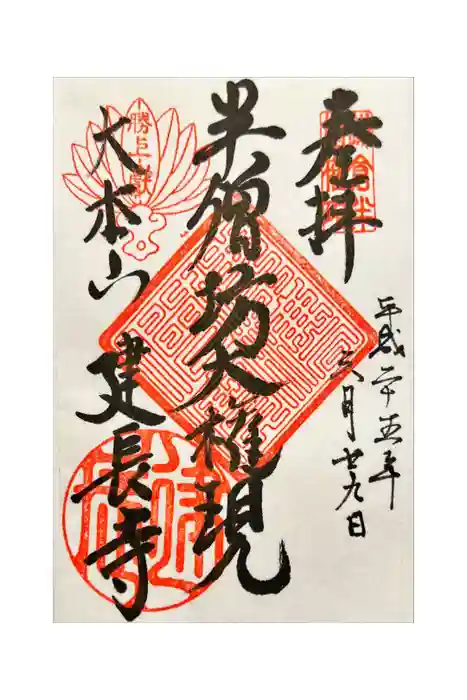 奉拝
平成二十五年
六月廿九日
半僧坊大権現
勝上嶽
大本山 建長寺